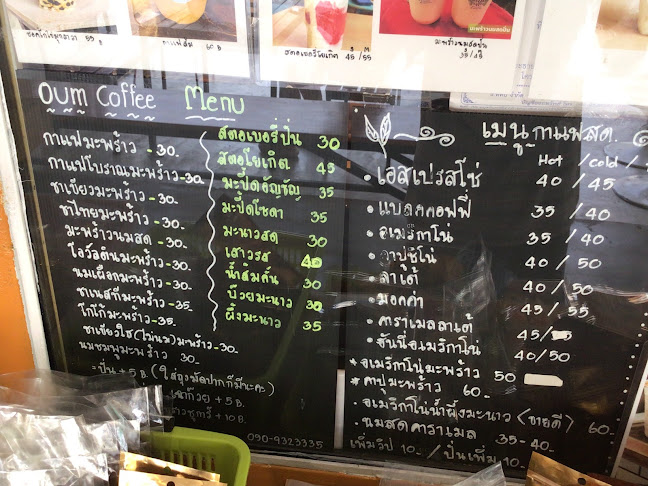 ชอคโกโก้มะพร้าว 35 B.
60 B.
สตอเบอรี่โยเกิต S M
45 / 55
มะพร้าวนมสดปั่น
35 / 45
OUM Coffee Menu
กาแฟมะพร้าว - 30.
กาแฟโบราณมะพร้าว - 30.
ชาเขียวมะพร้าว - 30.
ชาไทยมะพร้าว - 30.
มะพร้าวนมสด - 30.
โอวัลตินมะพร้าว - 30.
นมเผือกมะพร้าว - 30.
ชาเนสทีมะพร้าว - 35.
โกโก้มะพร้าว - 35.
ชาเขียวใส (ไม่นม) มะพร้าว - 30.
นมชมพูมะพร้าว 30.
= ปั่น + 5 B. (ใส่ถุงมัดปากก็มีนะคะ)
+ 5 B.
+ 10 B.
090-9323335
สตอเบอรี่ปั่น 30
สตอโยเกิต 45
มะปี๊ดอัญชัญ 35
มะปี๊ดโซดา 35
มะนาวสด 30
เสาวรส 40
น้ำส้มคั้น 30
บ๊วยมะนาว 30
ผึ้งมะนาว 35
เมนูกาแฟสด.
Hot / cold /
• เอสเปรสโซ่ 40 / 45
• แบลคคอฟฟี่ 35 / 40
• อเมริกาโน่ 35 / 40
• คาปูชิโน่ 40 / 50
• ลาเต้ 40 / 50
• มอคค่า 45 / 55
• คาราเมลลาเต้ 45 /
• ฮันนี่อเมริกาโน่ 40 / 50
* อเมริกาโน่มะพร้าว 50
* คาปูมะพร้าว 60.
• อเมริกาโน่น้ำผึ้งมะนาว (ขายดี) 60.
• นมสดคาราเมล 35 - 40.
เพิ่มวิป 10. / ปั่นเพิ่ม 10.